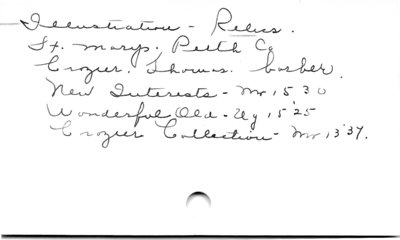 Illustration - Relics.
St. Marys. Perth Co
Crozier. Thomas. barber.
New Interests - Mr 15 30
Wonderful Old - Ag 15 '25
Crozier Collection - Mr 13 '37.